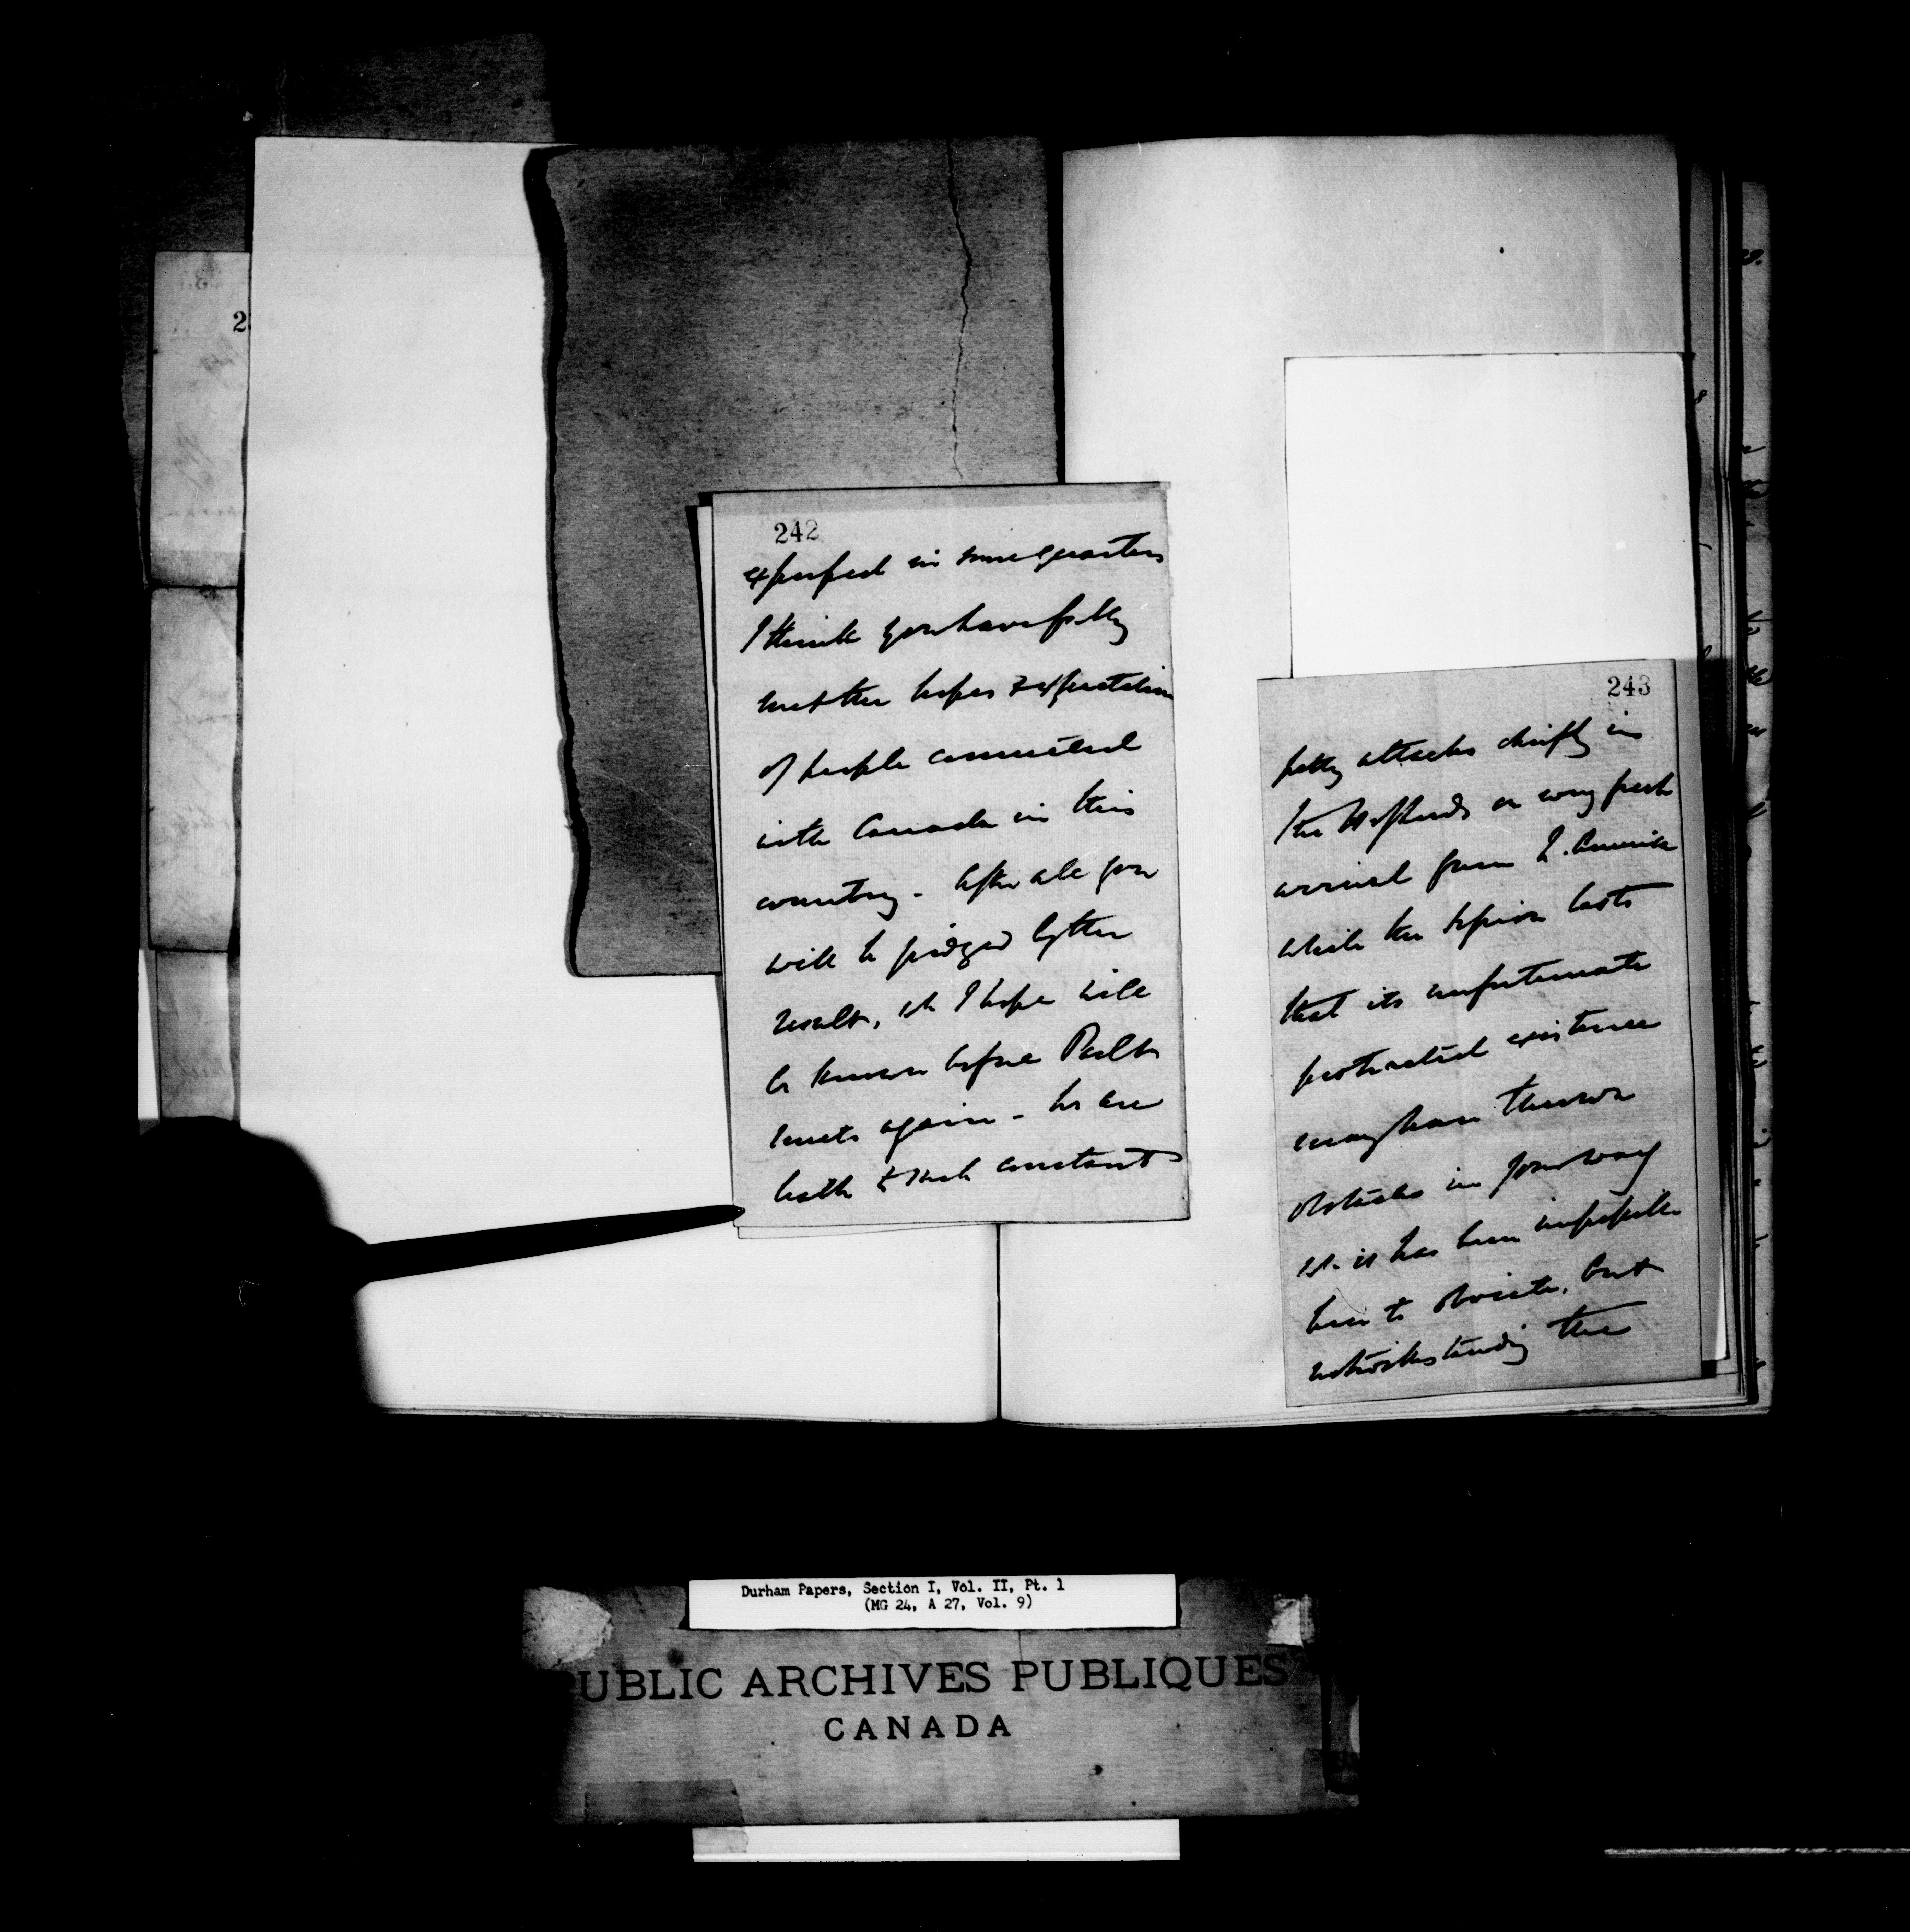 242
expressed in some quarters
I think you have fully
met the hopes & expectations
of people connected
with Canada in this
country - After all you
will be judged by the
result, wh I hope will
be known before Parlt
meets again - We are
both & such constant
243
petty attacks chiefly in
the on every fresh
arrival from N. America
while the Session lasts
that its unfortunate
protracted existence
may have thrown
obstacles in your way
wh. it has been impossible
here to obviate, but
notwithstanding the
2
Durham Papers, Section I, Vol. II, Pt. 1
(MG 24, A 27, Vol. 9)
PUBLIC ARCHIVES PUBLIQUES
CANADA